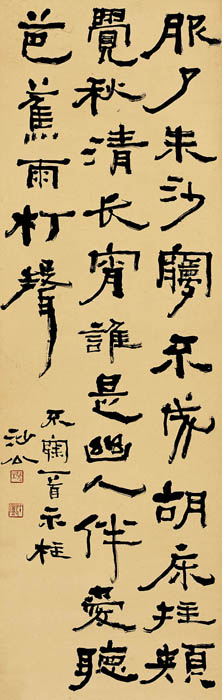 服夕朱沙夢不成胡床拄頰
覺秋清长宵誰是幽人伴愛聽
芭蕉雨打聲
不寐一首示柱
沙公